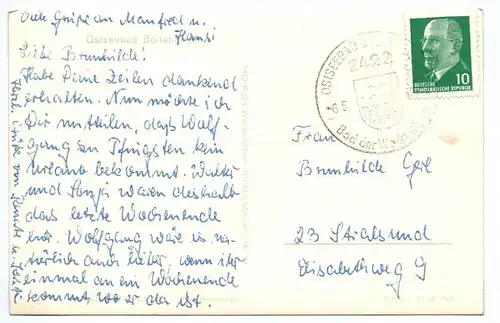 Viele Grüße an Manfred u. Hansi
Ostseebad Bolten
Liebe Brunhilde!
Habe Deine Zeilen dankend
erhalten. Nun möchte ich
Dir mitteilen, daß Wolf-
gang zu Pfingsten kein
Urlaub bekommt. Walter
und Sonja waren deshalb
das letzte Wochenende
hier. Wolfgang wäre es na-
türlich auch lieber, wenn ihr
einmal an ein Wochenende
kommt, wo er da ist.
Herzl. Grüße von
OSTSEEBAD
2422
-6.5
Bad der Werktätigen
10
DEUTSCHE
DEMOKRATISCHE REPUBLIK
Frau
Brunhilde
23 Stralsund
Elisabethweg 9